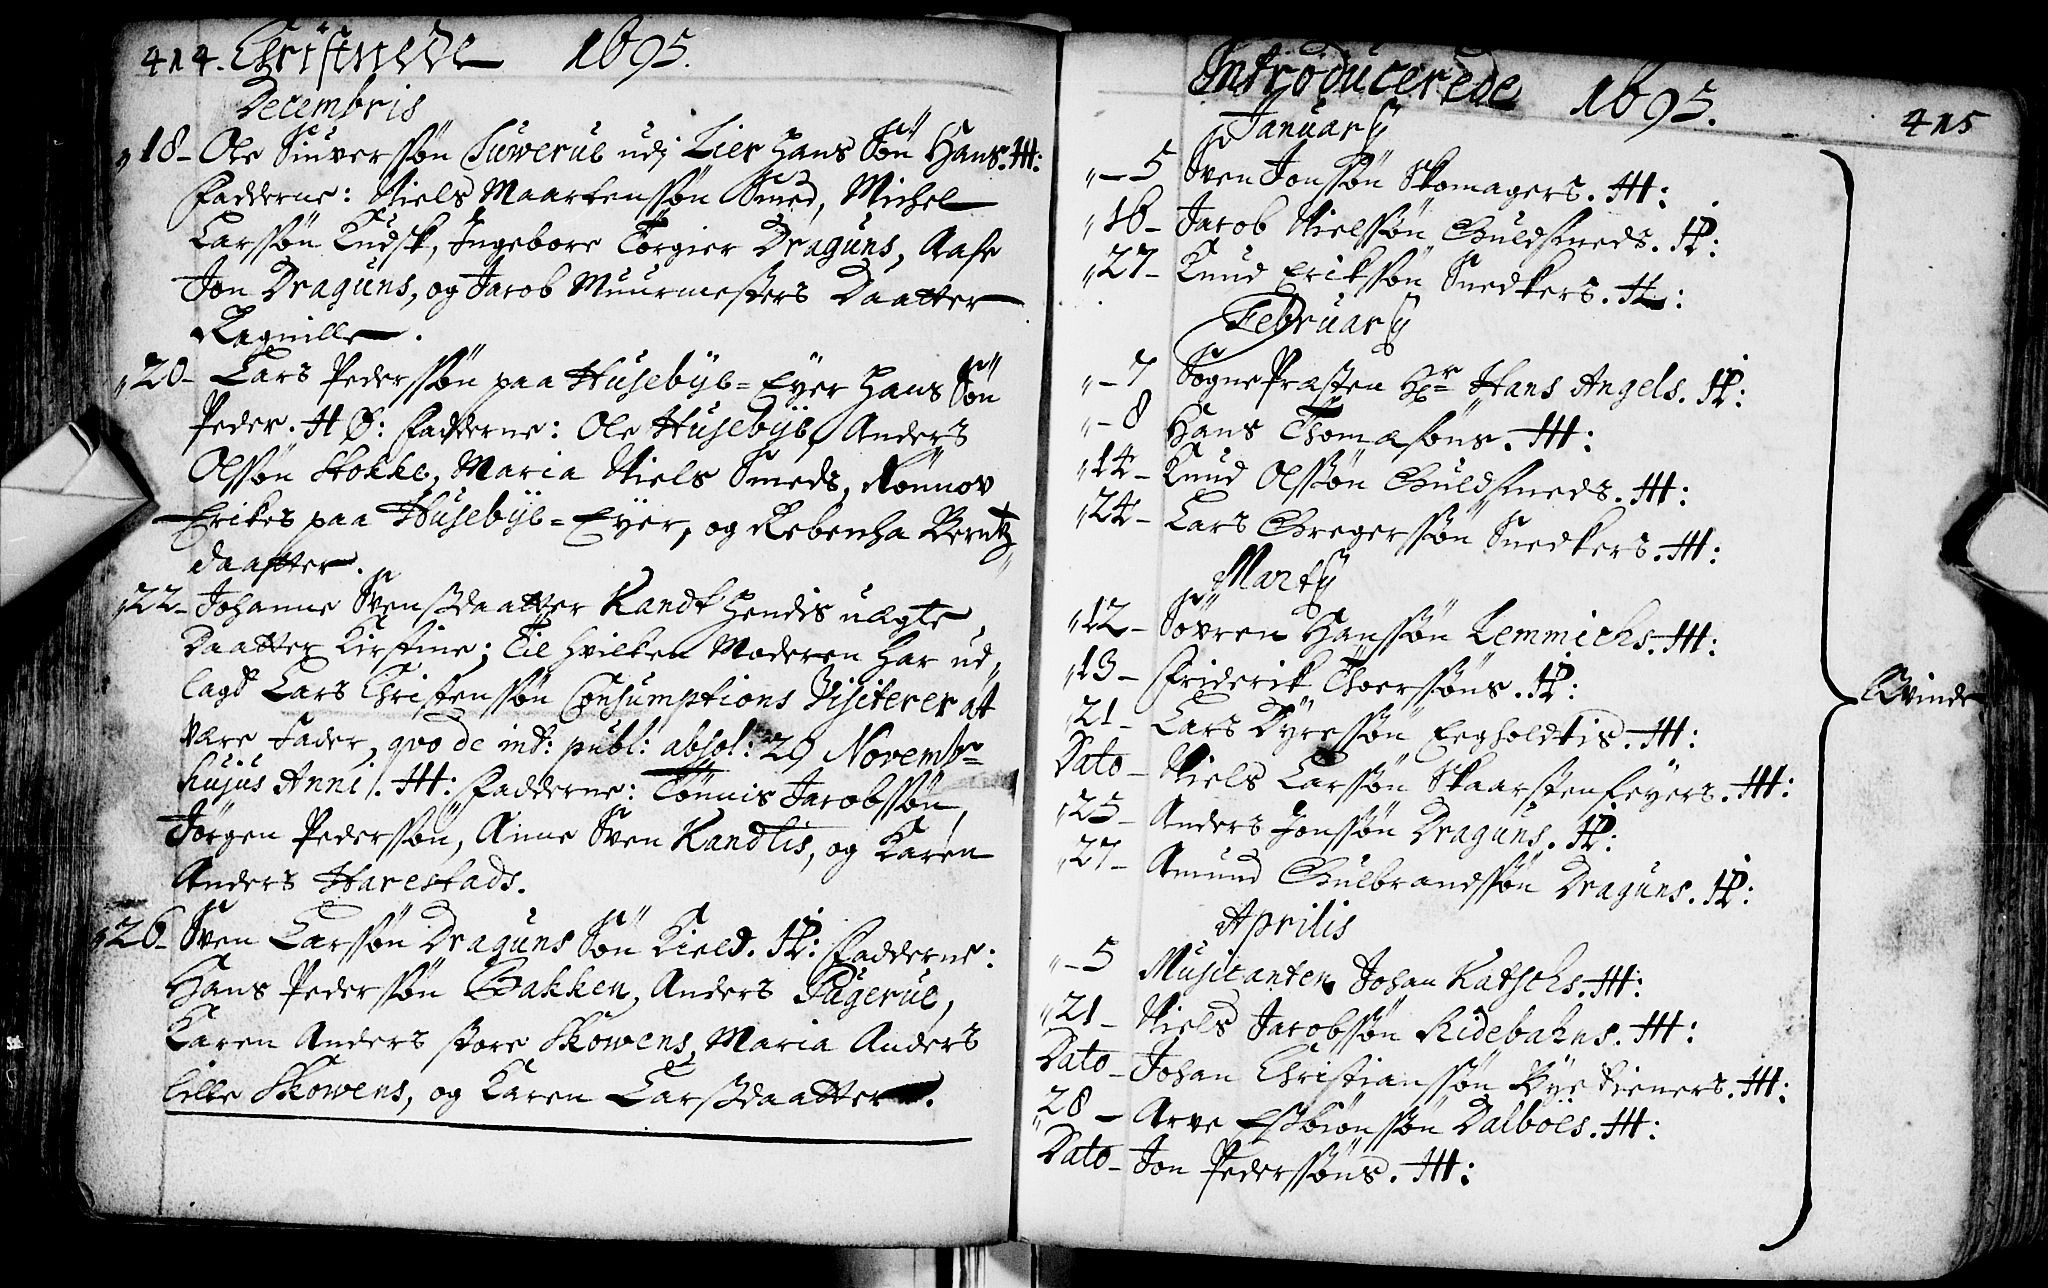 414. Christnede 1695.
Decembris
18 - Ole Siuversøn Suwerul udj Lier hans Søn Hans. HH:
Fadderne: Niels Maartenssøn Smed, Michel
Larssøn Kudsk, Ingebore Törgier Draguns, Aase
Jon Draguns, og Jacob Muurmesters Daatter
Ragnille.
20 - Lars Pederssøn paa Husebÿe=Eÿer hans Søn
Peder. HØ: Fadderne: Ole Husebÿe, Anders
Olssøn Stokke, Maria Niels Smeds, Rønnov
Erikes paa Husebÿe=Eÿer, og Rebencha Berntz
daatter.
22 - Johanne Svenssdaatter Kandt hendis uægte
Daatter Kirstine; Til hvilken Moderen har ud
lagdt Lars Christenssøn Consumptions Visiterer at
være Fader, quo de int: publ: absol: 29 Novembr
hujus Anni. HH: Fadderne: Tönnis Jacobssøn,
Jørgen Pederssøn, Anne Sven Kandtis, og Karen
Anders Harestads.
26 - Sven Larssøn Draguns Søn Kield. HP: Fadderne:
Hans Pederssøn Bakken, Anders Pagerul,
Karen Anders store Skowens, Maria Anders
lille Skowens, og Karen Larssdaatter.
Introducerede 1695. 415
Januarij
5 Sven Jonssøn Skomagers. HH:
16 - Jacob Nielssøn Guldsmeds. HP:
27 - Knud Erikssøn Snedkers. HL:
Februarij
7 Sogne Præsten Hr Hans Angels. HP:
8 Hans Thomasøns. HH:
14 - Knud Olssøn Guldsmeds. HH:
24 - Lars Gregerssøn Snedkers. HH:
Martij
12 - Søvren Hanssøn Lemmichs. HH:
13 - Friderik Thoerssøns. HP:
21 - Lars Dÿressøn Eegholdtis. HH:
Dato - Niels Larssøn Skaarstenfeyers. HH:
25 - Anders Jonssøn Draguns. HP:
27 - Amund Gulbrandssøn Draguns. HP:
Aprilis
5 Musicanten Johan Katschs. HH:
21 - Niels Jacobssøn Ridebahns. HH:
Dato - Johan Christianssøn Bÿe tieners. HH:
28 - Arve Esbiønssøn Dalboes. HH:
Dato - Jon Pederssøns. HH:
Qvinde